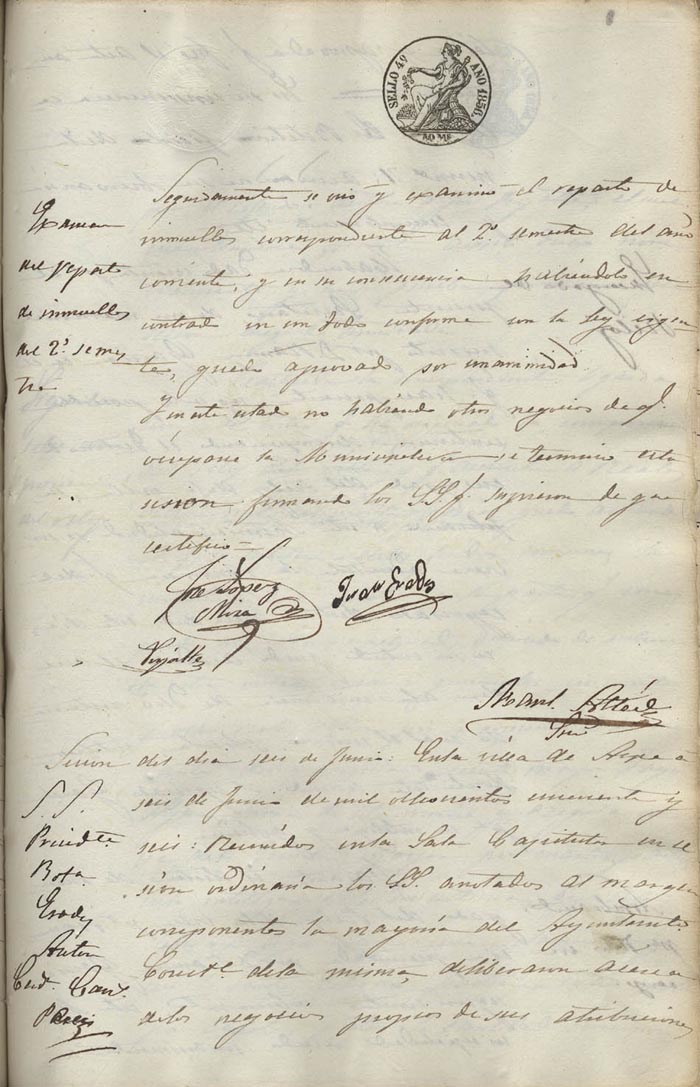 SELLO 4º AÑO 1856.
40 MRS
Examen
del reparto
de inmuebles
del 2º semes
tre
Seguidamente se vio y examino el reparto de
inmuebles correspondiente al 2º semestre del año
corriente, y en su consecuencia habiéndolo en
contrado en un todo conforme con la Ley vigen
te, quedó aprovado por unanimidad.
Y en este estado no habiendo otros negocios de q.
ocuparse la Municipalidad se termino esta
sesion firmando los SS. q. supieron de que
certifico =
José López
Mira
Juan Erades
Manl.
Srio
Sesion del dia seis de Junio: En la villa de Aspe a
seis de Junio de mil ochocientos cincuenta y
seis: Reunidos en la Sala Capitular en se
sion ordinaria los SS. anotados al margen
componentes la mayoría del Ayuntamto
Constl. de la misma, deliberaron acerca
de los negocios propios de sus atribuciones
S. S.
Presidte
Bota
Erades
Anton
Cerd.